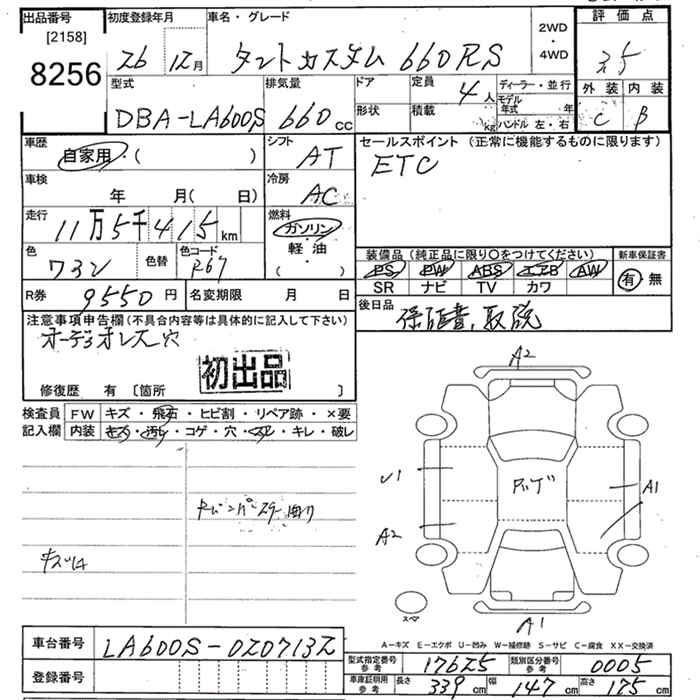 出品番号
[2158]
8256
初度登録年月
26 12月
車名・グレード
タントカスタム 660RS
2WD
・
4WD
評価点
3.5
外装 内装
C B
型式
DBA-LA600S
排気量
660cc
ドア
形状
定員
4人
積載
kg
ディーラー・並行
モデル年式 年
ハンドル 左・右
車歴
自家用・( )
シフト
AT
セールスポイント (正常に機能するものに限ります)
ETC
車検
年 月( 日)
冷房
AC
走行
11万5千415km
燃料
ガソリン
軽・油
( )
色
ワイン
色替
色コード
R67
装備品 (純正品に限り〇をつけてください)
PS PW ABS エアB AW
SR ナビ TV カワ
新車保証書
有・無
R券
9550円
名変期限 月 日
後日品
保証書、取説
注意事項申告欄(不具合内容等は具体的に記入して下さい)
オーディオレス穴
初出品
修復歴 有〔箇所 〕
検査員
記入欄
FW キズ・飛石・ヒビ割・リペア跡・×要
内装 キズ・汚れ・コゲ・穴・スレ・キレ・破レ
A2
U1
A1
A2
A1
スペア
A-キズ E-エクボ U-凹み W-補修跡 S-サビ C-腐食 XX-交換済
車台番号
LA600S-0207132
登録番号
型式指定番号 参考
17625
類別区分番号 参考
0005
車庫証明用 参考
長さ 339cm 幅 147cm 高さ 175cm